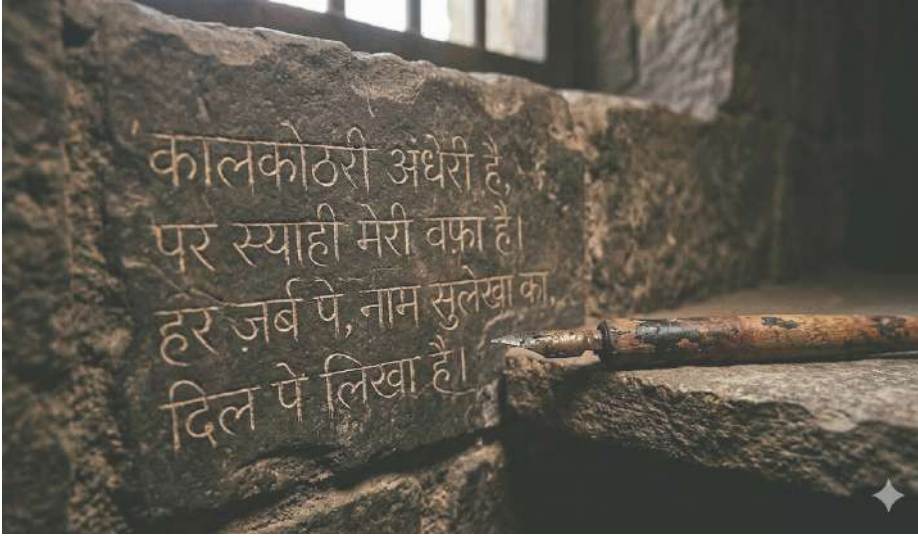 कालकोठरी अंधेरी है,
पर स्याही मेरी वफ़ा है।
हर ज़र्ब पे, नाम सुलेखा का,
दिल पे लिखा है।